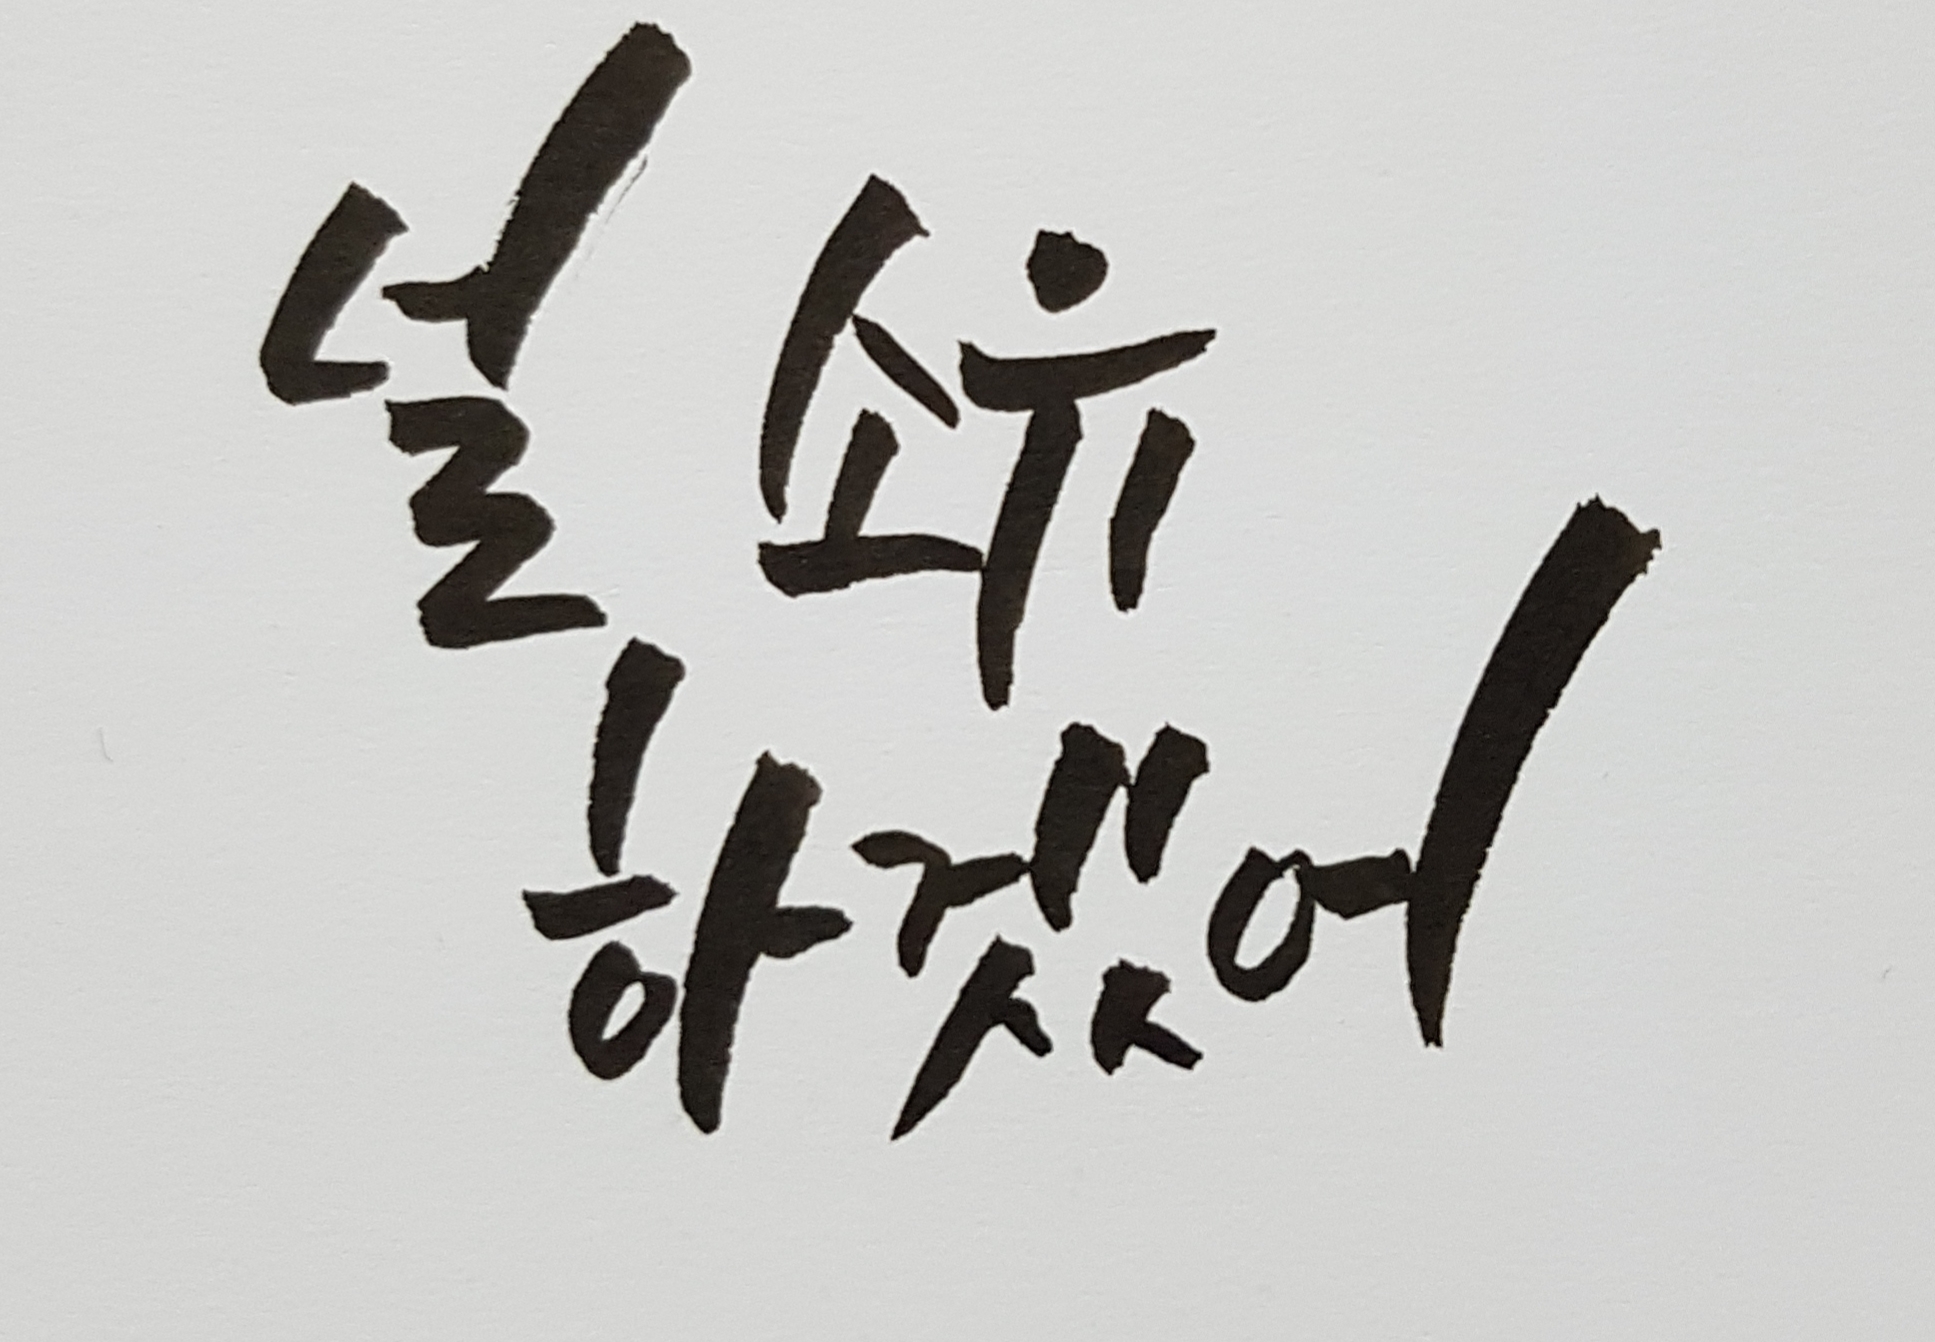 널 소유
하겠어